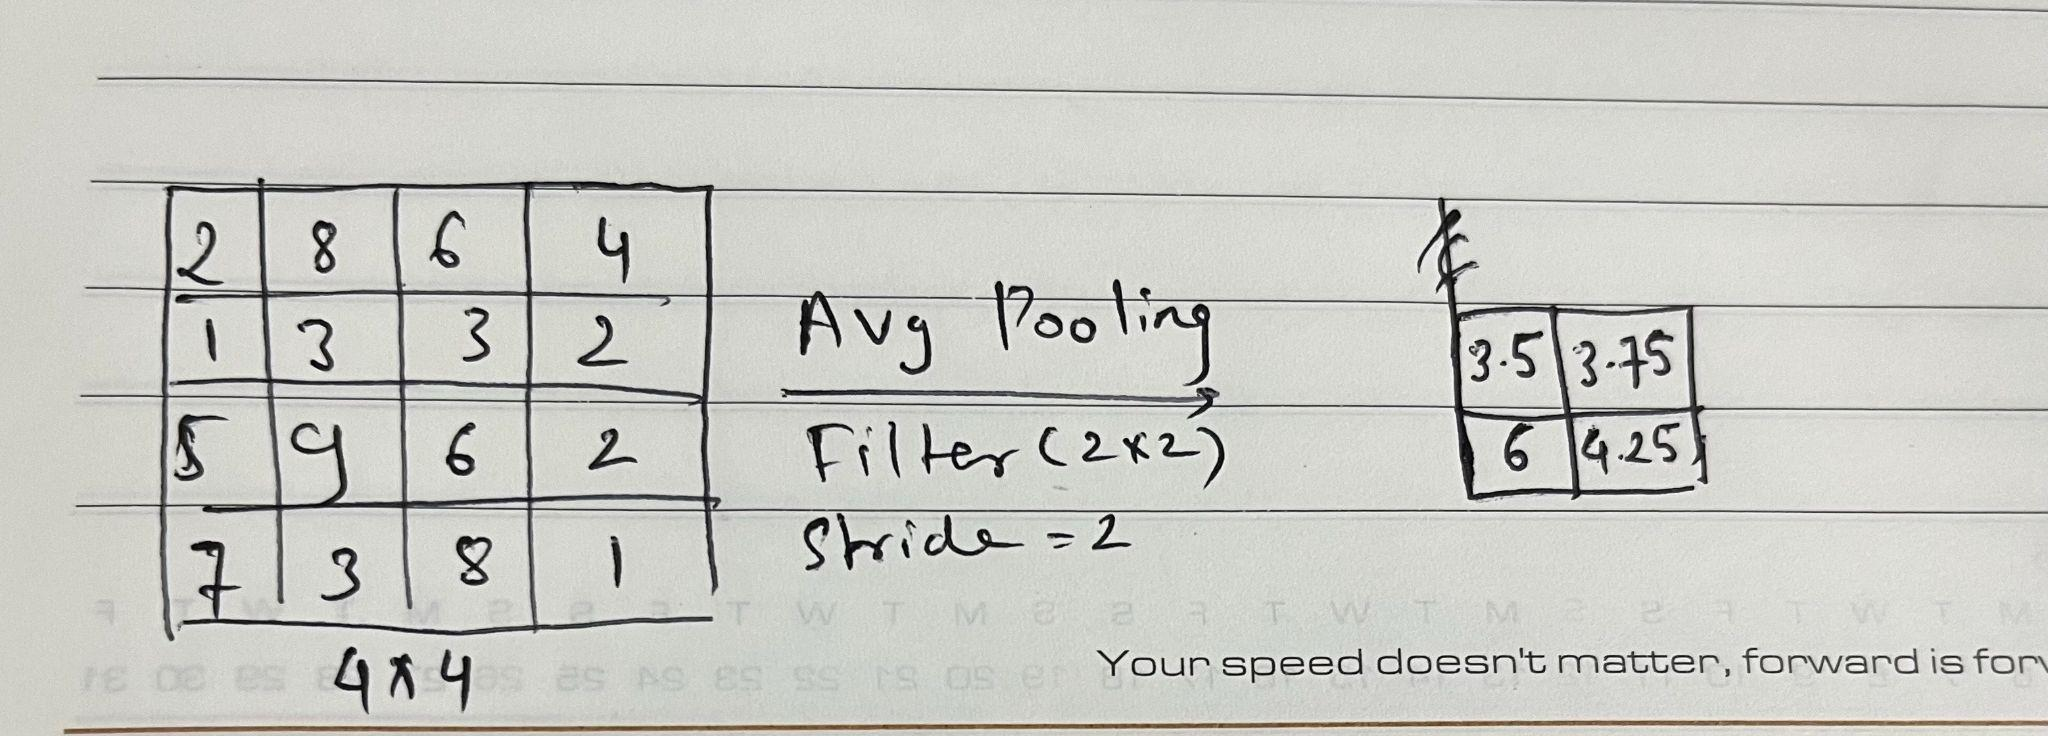 2 8 6 4
1 3 3 2
5 9 6 2
7 3 8 1
4×4
Avg Pooling
Filter (2×2)
Stride = 2
3.5 3.75
6 4.25
Your speed doesn't matter, forward is forw